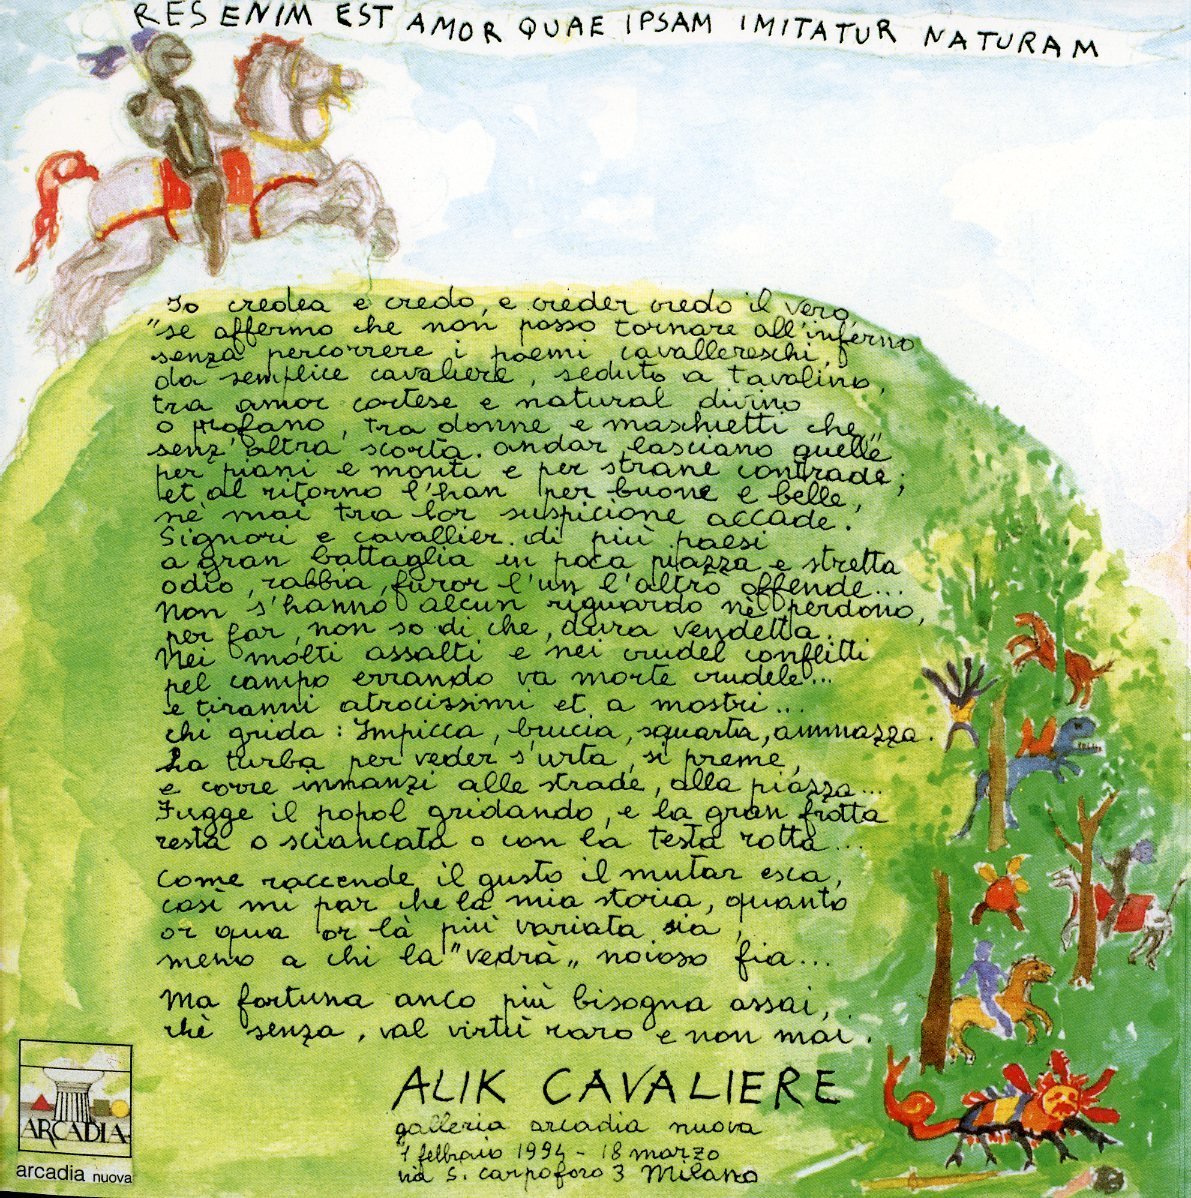 RES ENIM EST AMOR QUAE IPSAM IMITATUR NATURAM
Io credea e credo, e creder credo il vero
"se affermo che non posso tornare all'inferno
senza percorrere i poemi cavallereschi,
da semplice cavaliere, seduto a tavolino,
tra amor cortese e natural divino
o profano, tra donne e maschietti che"
senz'altra scorta andar lasciano quelle
per piani e monti e per strane contrade;
et al ritorno l'han per buone e belle,
nè mai tra lor suspicione accade.
Signori e cavallier di più paesi
a gran battaglia in poca piazza e stretta
odio, rabbia, furor l'un l'altro offende...
Non s'hanno alcun riguardo nè perdono,
per far, non so di che, dura vendetta.
Nei molti assalti e nei crudel conflitti
pel campo errando va morte crudele...
e tiranni atrocissimi et a mostri...
chi grida: Impicca, brucia, squarta, ammazza.
La turba per veder s'urta, si preme,
e corre innanzi alle strade, alla piazza...
Fugge il popol gridando, e la gran frotta
resta o sciancata o con la testa rotta...
Come raccende il gusto il mutar esca,
così mi par che la mia storia, quanto
or qua or là più variata sia,
meno a chi la "vedrà" noioso fia...
Ma fortuna anco più bisogna assai,
chè senza, val virtù raro e non mai.
ALIK CAVALIERE
galleria arcadia nuova
1 febbraio 1994 - 18 marzo
via S. Carpoforo 3 Milano
ARCADIA
arcadia nuova